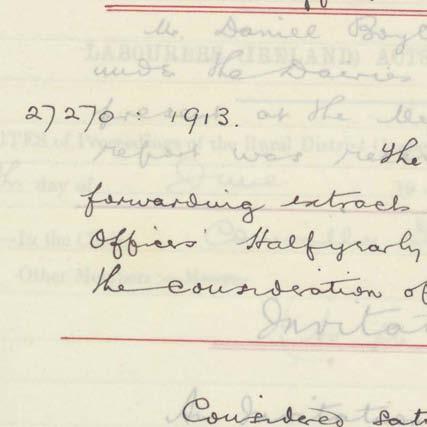 Mr. Daniel Boyl
LABOURERS (IRELAND) ACTS
under the Dairies
27270 : 1913.
present at the Me
ITES of Proceedings of the Rural District Coun
report was re
the
day of June 19
forwarding extract
Officers' Half yearly
In the C
Other Mem
the consideration of
Invitat
Considered sat